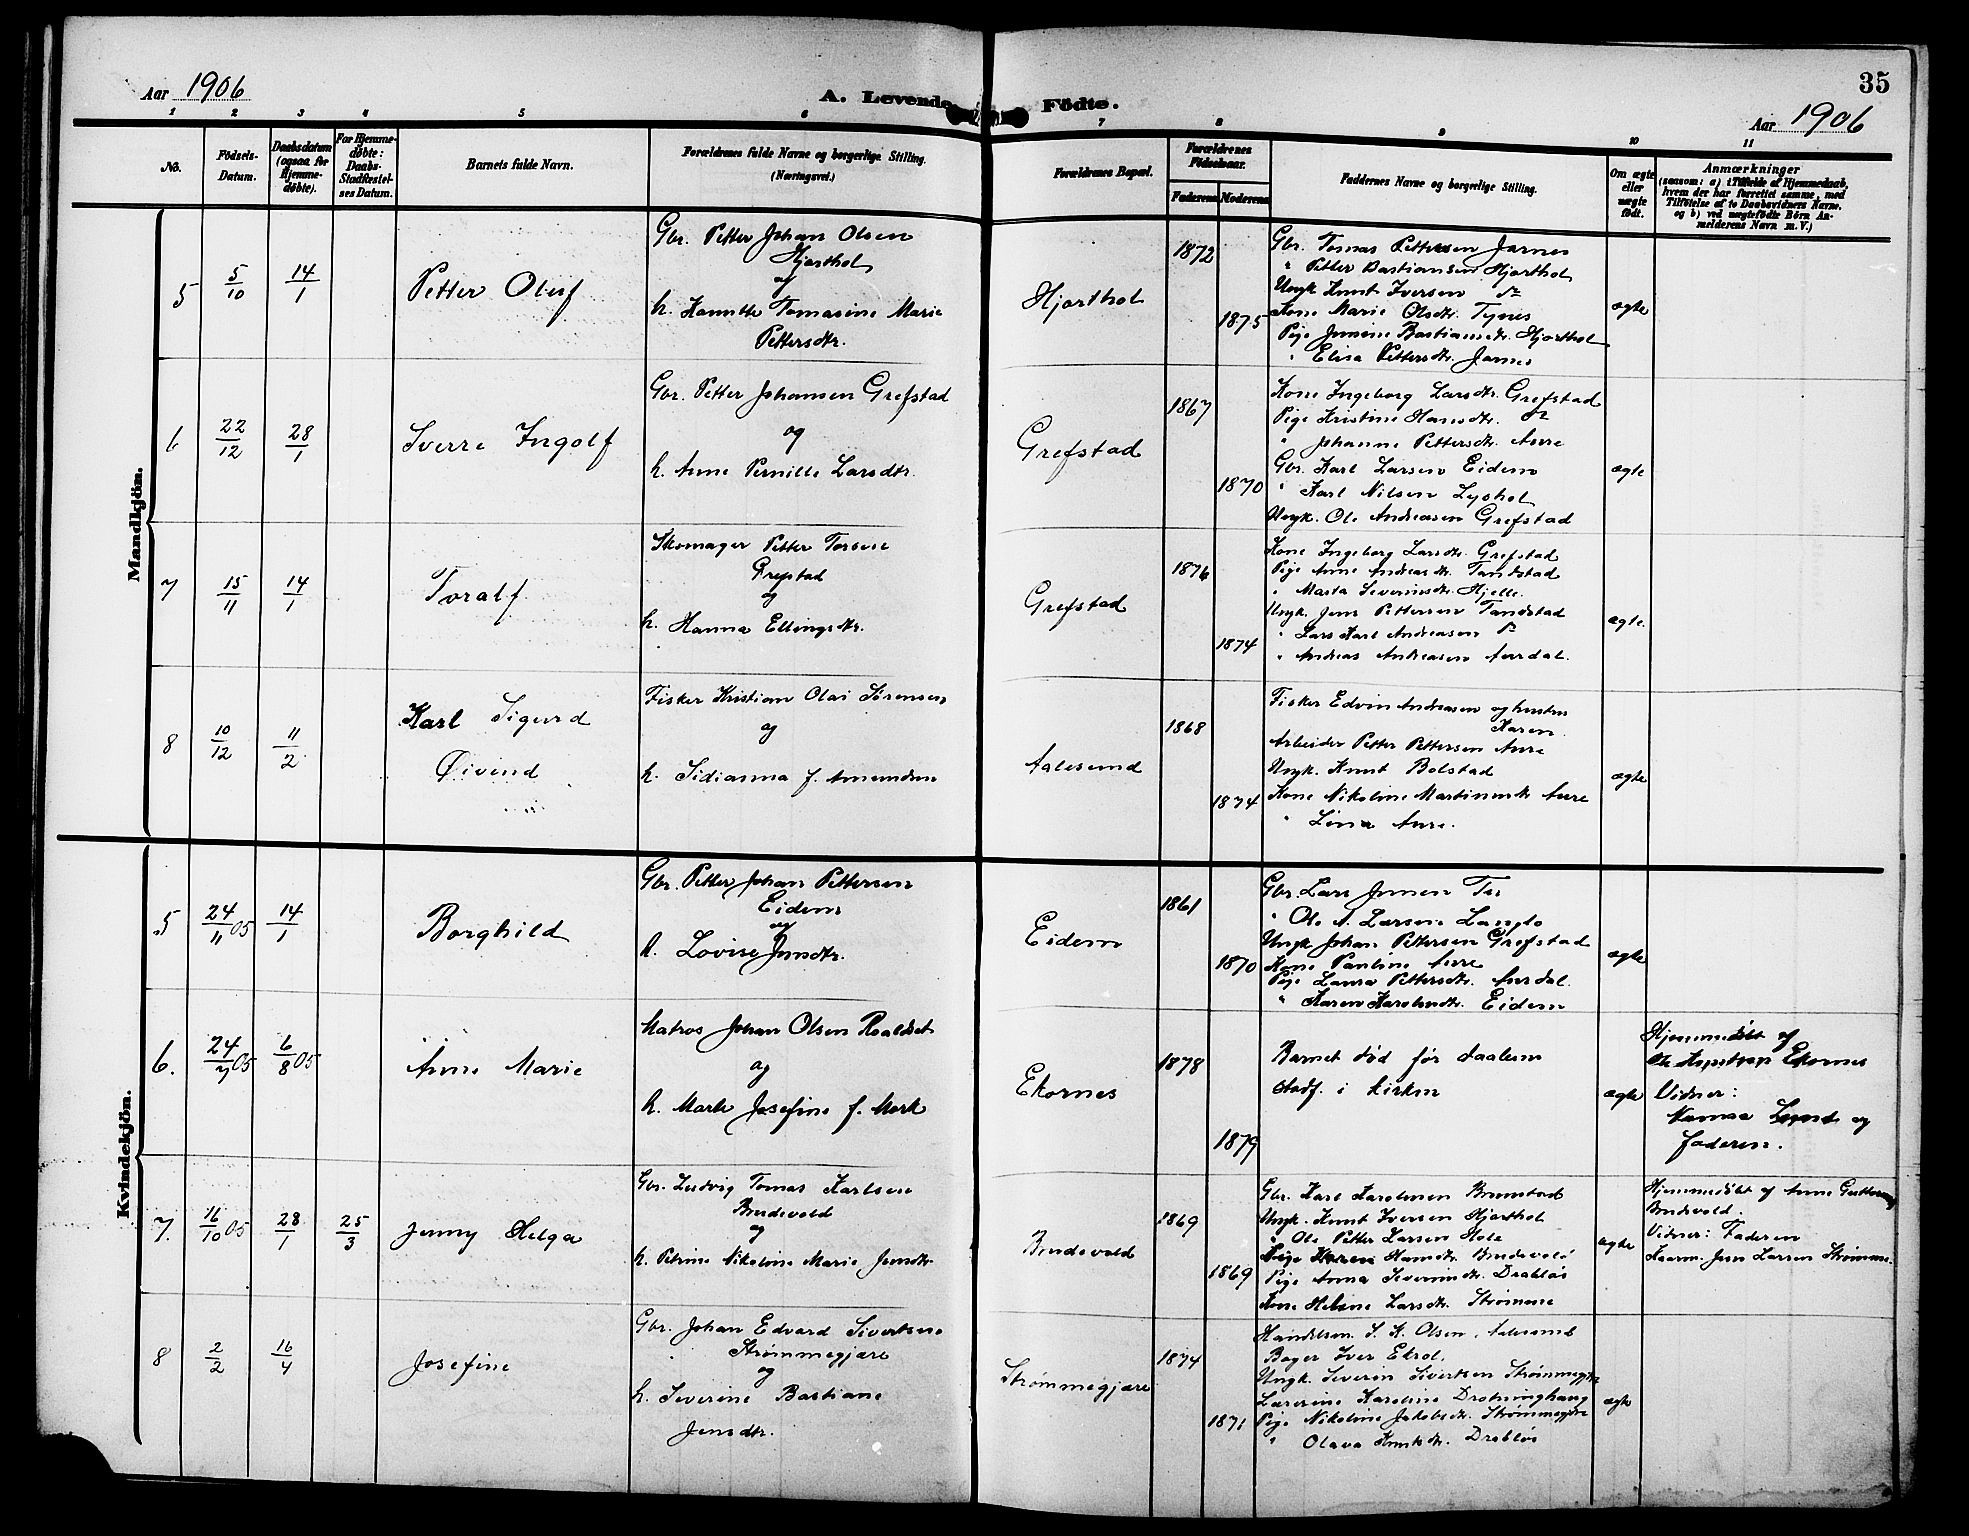 35
Aar 1906
A. Levende Födte.
Aar 1906
1 2 3 4 5 6 7 8 9 10 11
No.
Födsels-Datum.
Daabsdatum (ogsaa for Hjemme-döbte).
For Hjemme-döbte: Daabs-Stadfæstel-ses Datum.
Barnets fulde Navn.
Forældrenes fulde Navne og borgerlige Stilling.
(Næringsvei.)
Forældrenes Bopæl.
Forældrenes Födselsaar.
Faderens Moderens
Faddernes Navne og borgerlige Stilling.
Om ægte eller uægte födt.
Anmærkninger
(saasom: a) i Tilfælde af Hjemmedaab,
hvem der har forrettet samme, med
Tilföielse af to Daabsvidners Navne.
og b) ved uægtefödte Börn An-
melderens Navn m. V.)
Mandkjön.
5 5/10 14/1 Petter Oluf
Gbr. Petter Johan Olsen
Hjorthol
og
h. Hanette Tomasine Marie
Pettersdtr.
Hjorthol 1872 1875
Gbr. Tomas Pettersen Jarnes
" Petter Bastiansen Hjorthol
Ungk. Knut Iversen do
Kone Marie Olsdtr. Tynes
Pige Jensine Bastiansdtr. Hjorthol
" Elisa Pettersdtr. Jarnes
ægte
6 22/12 28/1 Sverre Ingolf
Gbr. Petter Johansen Grefstad
og
h. Anne Pernille Larsdtr.
Grefstad 1867 1870
Kone Ingeborg Larsdtr. Grefstad
Pige Kristine Hansdtr. do
" Johanne Pettersdtr. Aure
Gbr. Karl Larsen Eidem
" Karl Nilsen Lyshol
Ungk. Ole Andreasen Grefstad
ægte
7 15/11 14/1 Toralf
Skomager Petter Torsen
Grefstad
og
h. Hanna Ellingsdtr.
Grefstad 1876 1874
Kone Ingeborg Larsdtr. Grefstad
Pige Anne Andreasdtr. Tandstad
" Marta Severinsdtr. Hjelle.
Ungk. Jens Pettersen Tandstad
" Lars Karl Andreasen do
" Andreas Andreasen Aurdal.
ægte.
8 10/12 11/2 Karl Sigurd
Øivind
Fisker Kristian Olai Sørensen
og
h. Sidianna f. Amundsen
Aalesund 1868 1874
Fisker Edvin Andreasen og hustru
Karen
Arbeider Petter Pettersen Aure
Ungk. Knut Bolstad
Kone Nikoline Martinusdtr. Aure
" Lina Aure.
ægte
Kvindekjön.
5 24/11 05 14/1 Borghild
Gbr. Petter Johan Pettersen
Eidem
og
h. Lovise Jensdtr.
Eidem 1861 1870
Gbr. Lars Jensen
" Ole A. Larsen Langlo
Ungk. Johan Pettersen Grefstad
Kone Pauline Aure
Pige Laura Pettersdtr. Aurdal.
" Karen Karolusdtr. Eidem
ægte
6. 24/7 05 6/8 05 Anne Marie
Matros Johan Olsen Roaldset
og
h. Marte Josefine f. Mork
Ekornes 1878 1879
Barnet død før daaben
stadf. i kirken
ægte
Hjemmedøbt af
Ekornes
Vidner:
og
faderen.
7. 16/10 05 28/1 25/3 Jenny Helga
Gbr. Ludvig Tomas Karlsen
Brudevold
og
h. Petrine Nikoline Marie Jensdtr.
Brudevold 1869 1869
Gbr. Karl Karolusen Brunstad
Ungk. Knut Iversen Hjorthol
" Ole Petter Larsen Hole
Pige Karen Hansdtr. Brudevold
Pige Anna Severinsdtr. Drabløs
Kone Helene Larsdtr. Strømme
ægte
Hjemmedøbt af Anne
Brudevold.
Vidner: Faderen
Jens Larsen Strømme.
8 2/2 16/4 Josefine
Gbr. Johan Edvard Sivertsen
Strømmegjære
og
h. Severine Bastiane
Jensdtr.
Strømmegjære 1874 1871
Handelsm. S. K. Olsen, Aalesund
Bager Iver Ekrol.
Ungk. Severin Sivertsen Strømmegjre
Lærerinde Karoline Drotninghaug
Pige Nikoline Jakobsdtr. Strømmegjre
" Olava Knutsdtr. Drabløs
ægte